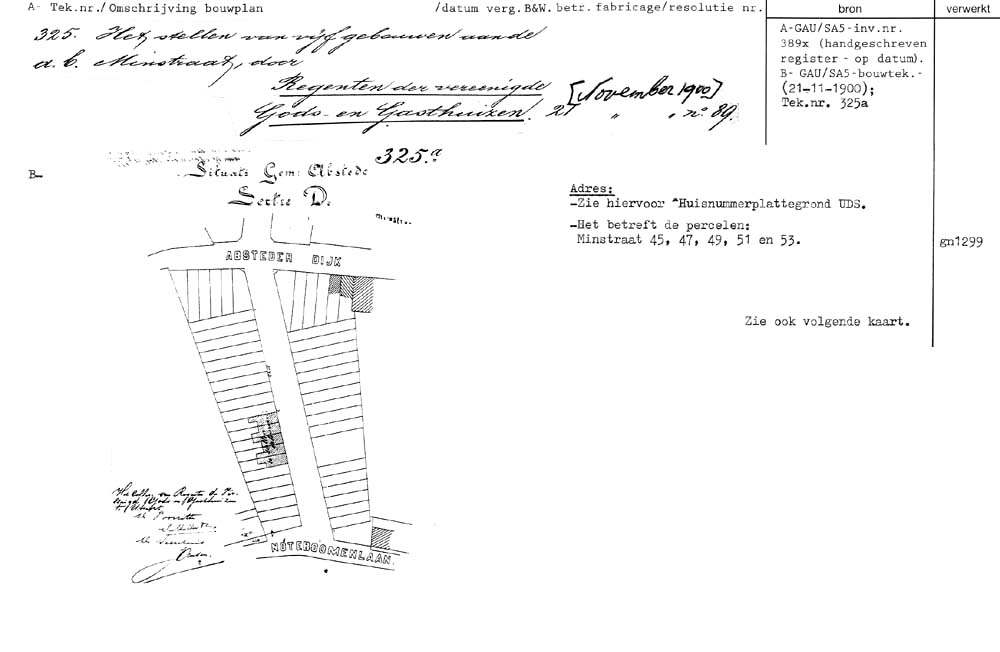 A- Tek.nr./Omschrijving bouwplan /datum verg.B&W. betr. fabricage/resolutie nr. bron verwerkt
325. Het stellen van vijf gebouwen aan de
a. b. Minstraat, door
Regenten der vereenigde
Gods- en Gasthuizen. 21 " " no 89.
[November 1900]
A-GAU/SA5-inv.nr.
389x (handgeschreven
register - op datum).
B- GAU/SA5-bouwtek.-
(21-11-1900);
Tek.nr. 325a
B-
325.a
Situatie Gem: Abstede
Sectie D.
Minstr
ABSTEDER DIJK
NOTEBOOMENLAAN.
Adres:
-Zie hiervoor "Huisnummerplattegrond UDS.
-Het betreft de percelen:
Minstraat 45, 47, 49, 51 en 53.
gn1299
Zie ook volgende kaart.